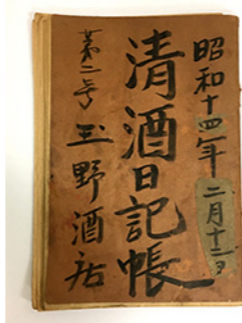 昭和十四年 二月十二日
清酒日記帳
第二号 玉野酒店